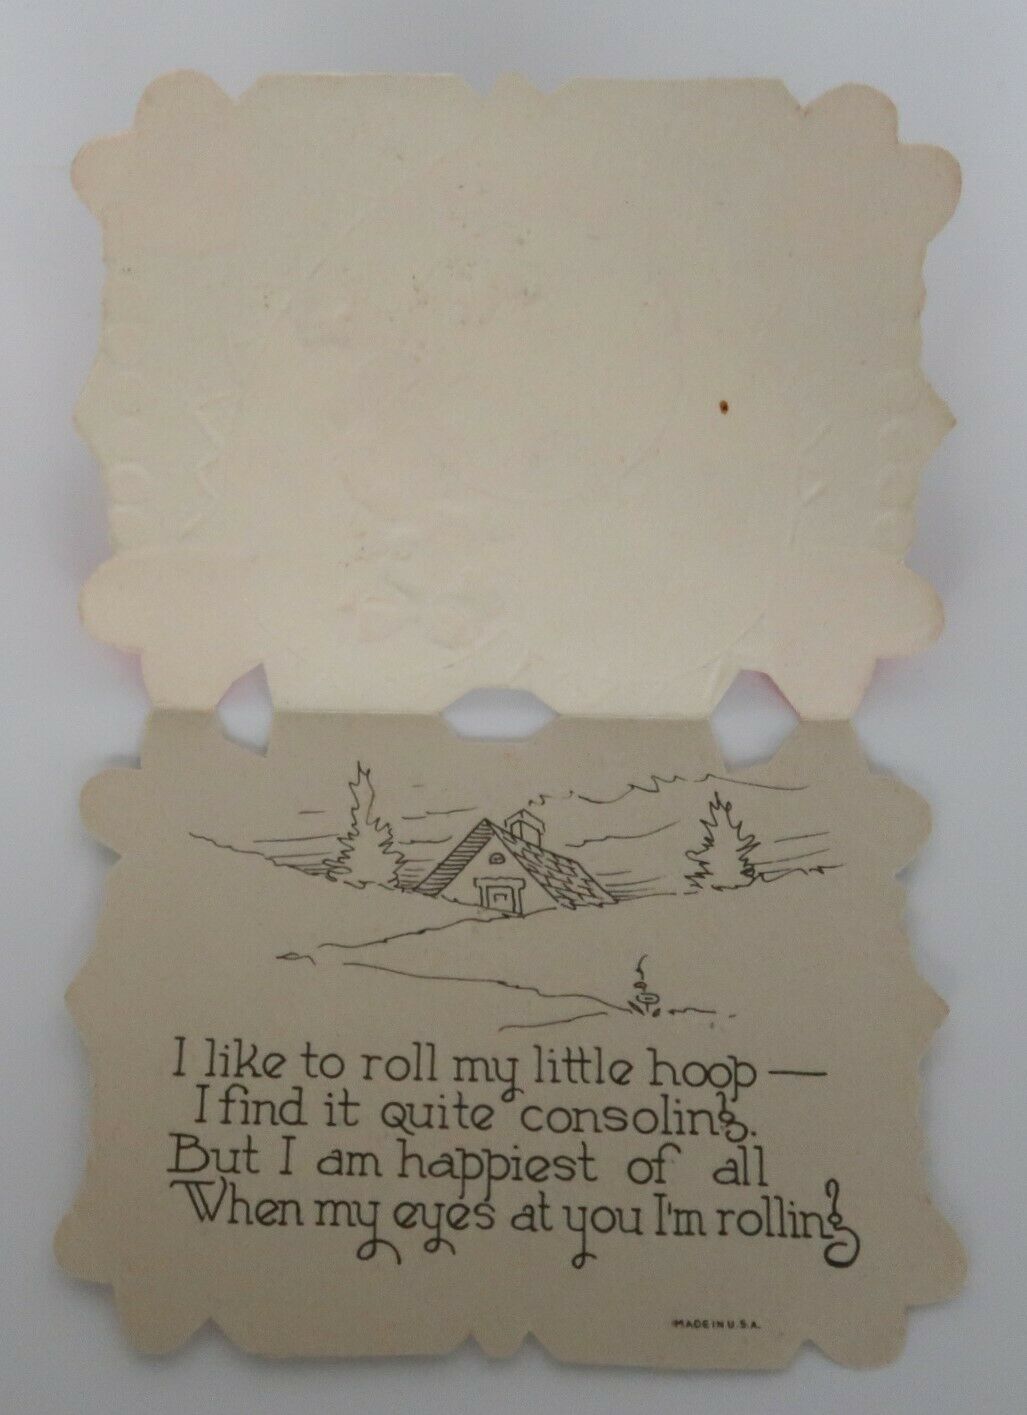 I like to roll my little hoop —
I find it quite consoling.
But I am happiest of all
When my eyes at you I'm rolling
MADE IN U.S.A.